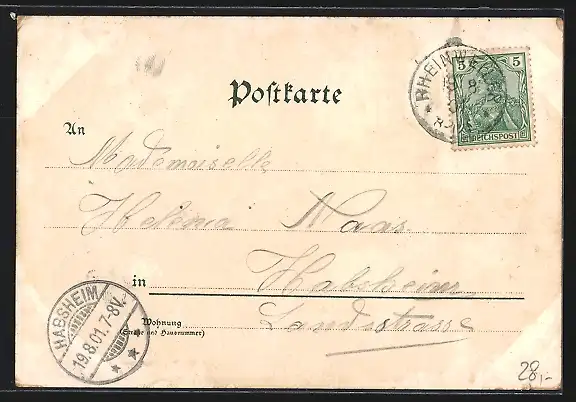 5 5
REICHSPOST
Postkarte
An
Mademoiselle
Helena Maas
in Habsheim
Wohnung
(Straße und Hausnummer)
Landstrasse
HABSHEIM
19.8.01.7-8V.
28,-